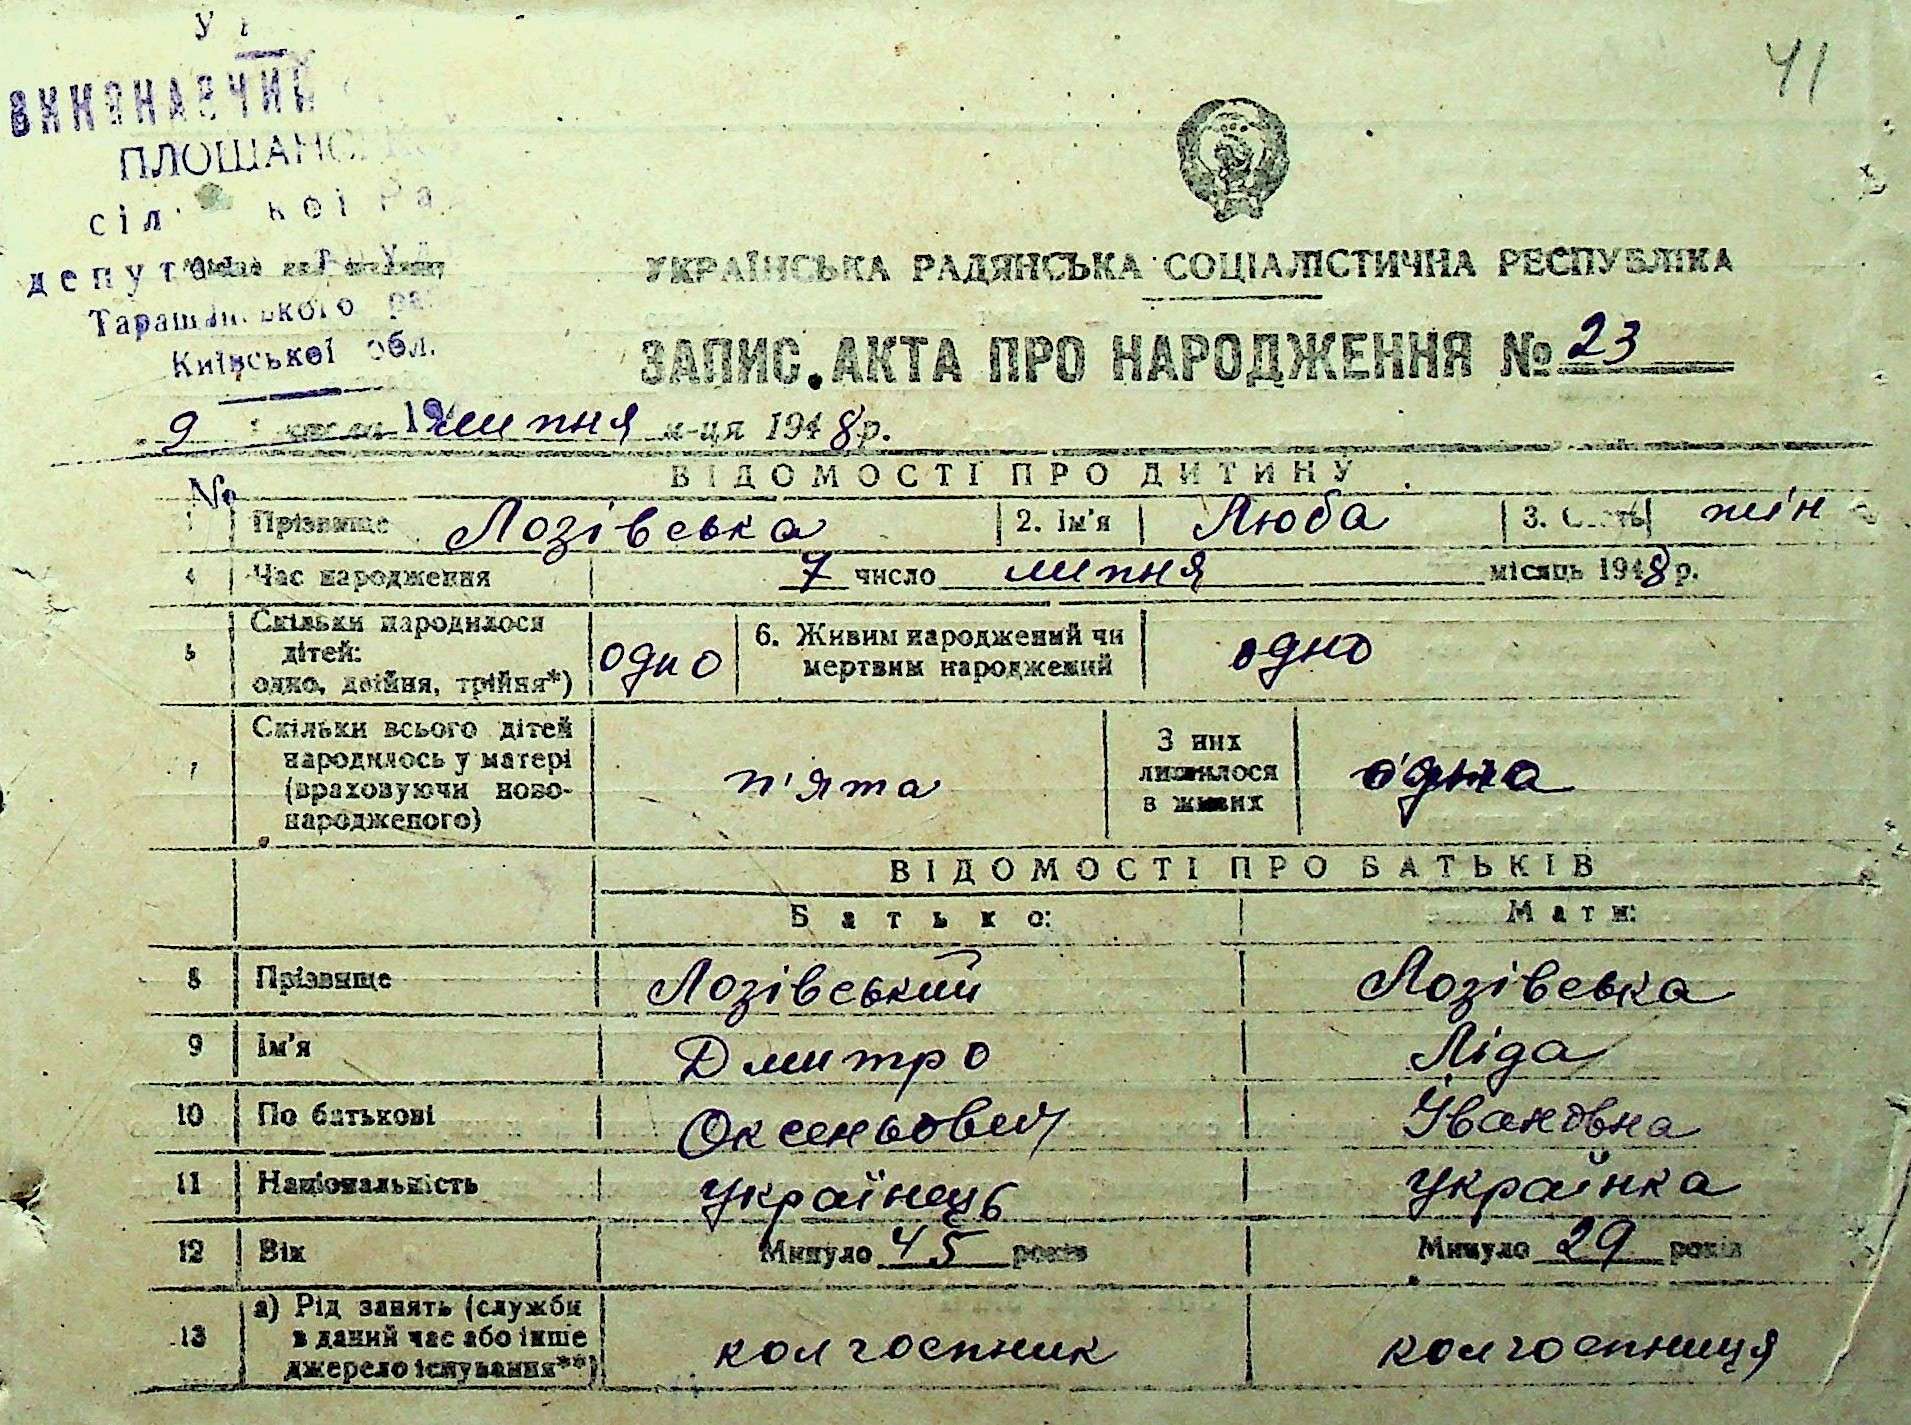 41
ВИКОНАВЧИЙ
ПЛОЩАНС
сіл кої Ра
депут
Таращанського ра
Київської обл.
УКРАЇНСЬКА РАДЯНСЬКА СОЦІАЛІСТИЧНА РЕСПУБЛІКА
ЗАПИС АКТА ПРО НАРОДЖЕННЯ № 23
9 липня м-ця 1948 р.
ВІДОМОСТІ ПРО ДИТИНУ
№
1 Прізвище Лозівська 2. Ім'я Люба 3. Стать жін
4 Час народження 7 число липня місяць 1948 р.
5 Скільки народилося дітей: одно, двійня, трійня*) одно 6. Живим народжений чи мертвим народжений одно
7 Скільки всього дітей народилось у матері (враховуючи ново-народженого) п'ята З них лишилося в живих одна
ВІДОМОСТІ ПРО БАТЬКІВ
Батько: Мати:
8 Прізвище Лозівський Лозівська
9 Ім'я Дмитро Ліда
10 По батькові Оксеньович Івановна
11 Національність українець українка
12 Вік Минуло 45 років Минуло 29 років
13 а) Рід занять (служби в даний час або інше джерело існування**) колгоспник колгоспниця